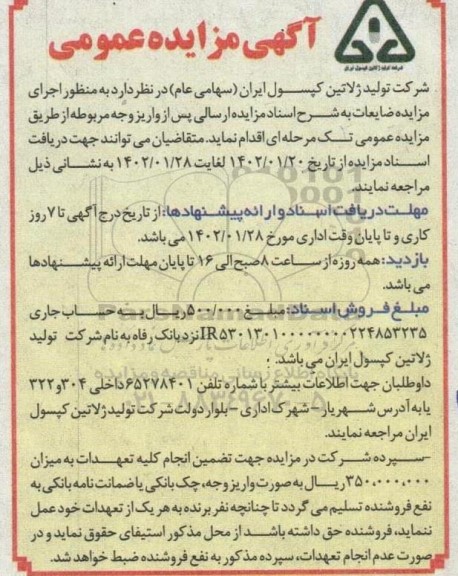 آگهی مزایده عمومی
شرکت تولید ژلاتین کپسول ایران
شرکت تولید ژلاتین کپسول ایران (سهامی عام) در نظر دارد به منظور اجرای
مزایده ضایعات به شرح اسناد مزایده ارسالی پس از واریز وجه مربوطه از طریق
مزایده عمومی تک مرحله ای اقدام نماید. متقاضیان می توانند جهت دریافت
اسناد مزایده از تاریخ ۱۴۰۲/۰۱/۲۰ لغایت ۱۴۰۲/۰۱/۲۸ به نشانی ذیل
مراجعه نمایند.
مهلت دریافت اسناد و ارائه پیشنهادها: از تاریخ درج آگهی تا ۷ روز
کاری و تا پایان وقت اداری مورخ ۱۴۰۲/۰۱/۲۸ می باشد.
بازدید: همه روزه از ساعت ۸ صبح الی ۱۶ تا پایان مهلت ارائه پیشنهادها
می باشد.
مبلغ فروش اسناد: مبلغ ۵۰۰/۰۰۰ ریال به حساب جاری
نزد بانک رفاه به نام شرکت تولید
ژلاتین کپسول ایران می باشد.
داوطلبان جهت اطلاعات بیشتر با شماره تلفن ۶۵۲۷۸۴۰۱ داخلی ۳۰۴ و ۳۲۲
یا به آدرس شهریار - شهرک اداری - بلوار دولت شرکت تولید ژلاتین کپسول
ایران مراجعه نمایند.
-سپرده شرکت در مزایده جهت تضمین انجام کلیه تعهدات به میزان
۳۵۰,۰۰۰,۰۰۰ ریال به صورت واریز وجه، چک بانکی یا ضمانت نامه بانکی به
نفع فروشنده تسلیم می گردد تا چنانچه نفر برنده به هر یک از تعهدات خود عمل
ننماید، فروشنده حق داشته باشد از محل مذکور استیفای حقوق نماید و در
صورت عدم انجام تعهدات، سپرده مذکور به نفع فروشنده ضبط خواهد شد.